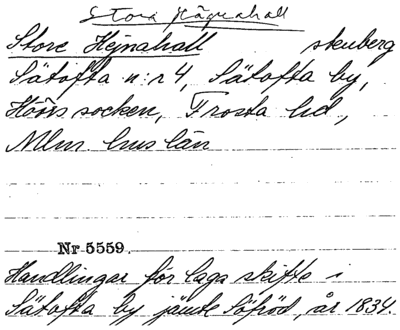 Stora Hägnahall
Store Hejnahall stenberg
Sätofta n:r 4, Sätofta by,
Höörs socken, Frosta hd,
Mlm. hus län
Nr 5559.
Handlingar för laga skifte i
Sätofta by jämte Säfröd, år 1834.